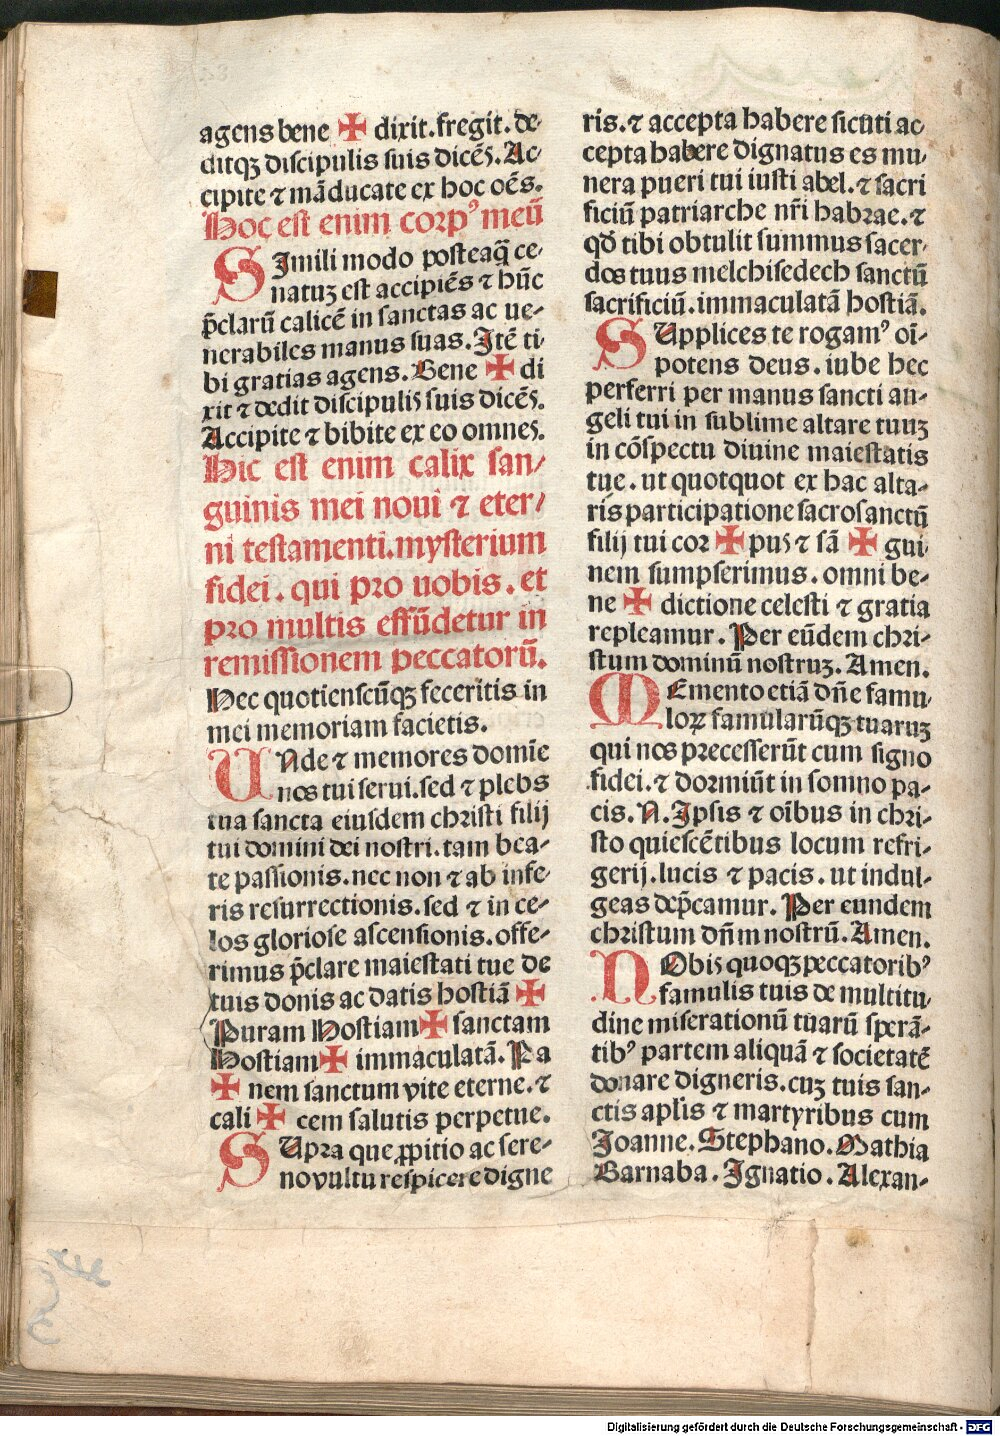 agens bene ✠ dixit.fregit.de-
ditqꝫ discipulis suis dicēs.Ac-
cipite ⁊ māducate ex hoc oēs.
Hoc est enim corpꝰ meū
SImili modo posteaq̄ ce-
natuꝫ est accipiēs ⁊ hūc
p̄clarū calicē in sanctas ac ve-
nerabiles manus suas.Itē ti-
bi gratias agens.Bene ✠ di
xit ⁊ dedit discipulis suis dicēs.
Accipite ⁊ bibite ex eo omnes.
Hic est enim calix san-
guinis mei noui ⁊ eter-
ni testamenti.mysterium
fidei.qui pro vobis.et
pro multis effūdetur in
remissionem peccatorū.
Hec quotienscūqꝫ feceritis in
mei memoriam facietis.
UNde ⁊ memores domīe
nos tui serui.sed ⁊ plebs
tua sancta eiusdem christi filij
tui domini dei nostri.tam bea-
te passionis.nec non ⁊ ab infe-
ris resurrectionis.sed ⁊ in ce-
los gloriose ascensionis.offe-
rimus p̄clare maiestati tue de
tuis donis ac datis hostiā ✠
Puram Hostiam ✠ sanctam
Hostiam ✠ immaculatā.Pa
✠ nem sanctum vite eterne.⁊
cali ✠ cem salutis perpetue.
SUpra que ꝓpitio ac sere-
no vultu respicere digne
ris.⁊ accepta habere sicuti ac-
cepta habere dignatus es mu-
nera pueri tui iusti abel.⁊ sacri
ficiū patriarche nr̄i habrae.⁊
qd̄ tibi obtulit summus sacer-
dos tuus melchisedech sanctū
sacrificiū.immaculatā hostiā.
SUpplices te rogamꝰ oī-
potens deus.iube hec
perferri per manus sancti an-
geli tui in sublime altare tuuꝫ
in cōspectu diuine maiestatis
tue.ut quotquot ex hac alta-
ris participatione sacrosanctū
filij tui cor ✠ pus ⁊ sā ✠ gui-
nem sumpserimus.omni be-
ne ✠ dictione celesti ⁊ gratia
repleamur.Per eūdem chri-
stum dominū nostruꝫ.Amen.
MEmento etiā dn̄e famu-
loꝝ famularūqꝫ tuaruꝫ
qui nos precesserūt cum signo
fidei.⁊ dormiūt in somno pa-
cis.N.Ipsis ⁊ oībus in chri-
sto quiescētibus locum refri-
gerij.lucis ⁊ pacis.ut indul-
geas dep̄camur.Per eundem
christum dn̄m nostrū.Amen.
NObis quoqꝫ peccatoribꝰ
famulis tuis de multitu-
dine miserationū tuarū sperā-
tibꝰ partem aliquā ⁊ societatē
donare digneris.cuꝫ tuis san-
ctis apl̄is ⁊ martyribus cum
Joanne.Stephano.Mathia
Barnaba.Ignatio.Alexan-
Digitalisierung gefördert durch die Deutsche Forschungsgemeinschaft - DFG